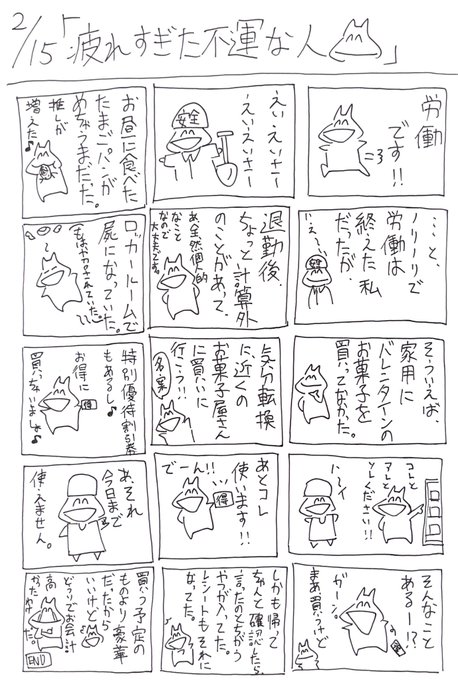 2/15「疲れすぎた不運な人」
労働
です!!
えいえいさー
えいえいさー
安全
お昼に食べた
たまごパンが
めちゃうまだった。
推しが
増えた♪
・・・と、
ノリノリで
労働は
終えた私
だったが
いえーい
退勤後
ちょっと計算外
のことがあって、
あ、全然個人的
なこと
なので
大丈夫です。
ロッカールームで
屍になっていた。
そういえば、
家用に
バレンタインの
お菓子を
買ってなかった。
気分転換
に、近くの
お菓子屋さん
に買いに
行こう!!
名案
特別優待割引券
もあるし♪
お得に
買っちゃいましょ♪
コレと
アレと
ソレください!!
ハーイ
あとコレ
使います!!
でーん!!
得
あ、それ
今日まで
使えません。
そんなこと
ある〜!?
ガーン
まあ買うけど
しかも帰って
ちゃんと確認したら、
言ったのとちがう
やつが入ってた。
レシートもそれに
なってた。
買う予定の
ものより豪華
だったから
いいけど
どうりでお会計
高
かったわけだ。
END